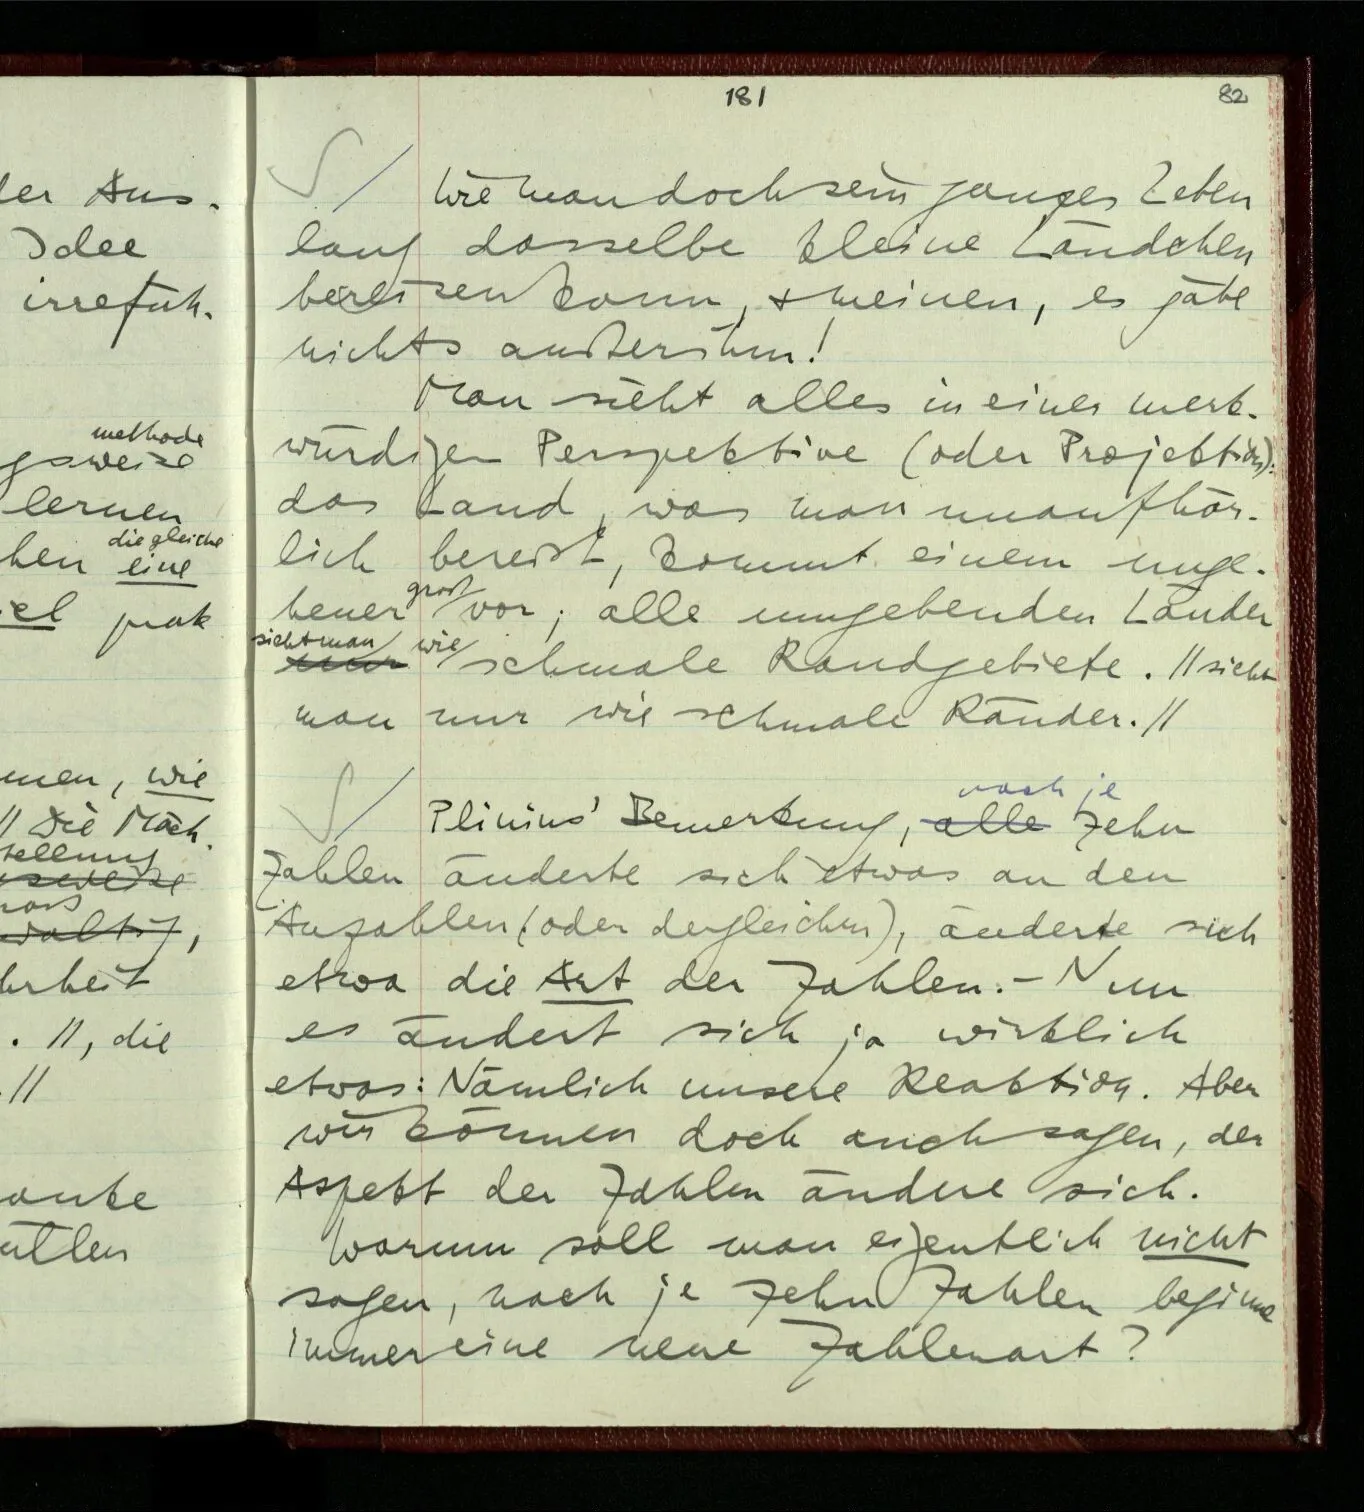 181
82
ler Aus-
Idee
irrefüh-
methode
gsweise
lernen
die gleiche
hen eine
el prak
men, wie
// Die Mach-
stellung
,
hrheit
. //, die
. //
√ / Wie man doch sein ganzes Leben
lang dasselbe kleine Ländchen
bereisen kann, & meinen, es gäbe
nichts außer ihm!
Man sieht alles in einer merk-
würdigen Perspektive (oder Projektion):
das Land, was man unaufhör-
lich bereist, kommt einem unge-
heuer groß vor; alle umgebenden Länder
sieht man nur wie schmale Randgebiete. // sieht
man nur wie schmale Ränder. //
√ / Plinius' Bemerkung, alle nach je zehn
Zahlen änderte sich etwas an den
Anzahlen (oder dergleichen), änderte sich
etwa die Art der Zahlen. – Nun
es ändert sich ja wirklich
etwas: Nämlich unsere Reaktion. Aber
wir können doch auch sagen, der
Aspekt der Zahlen ändere sich.
Warum soll man eigentlich nicht
sagen, nach je zehn Zahlen beginne
immer eine neue Zahlenart?